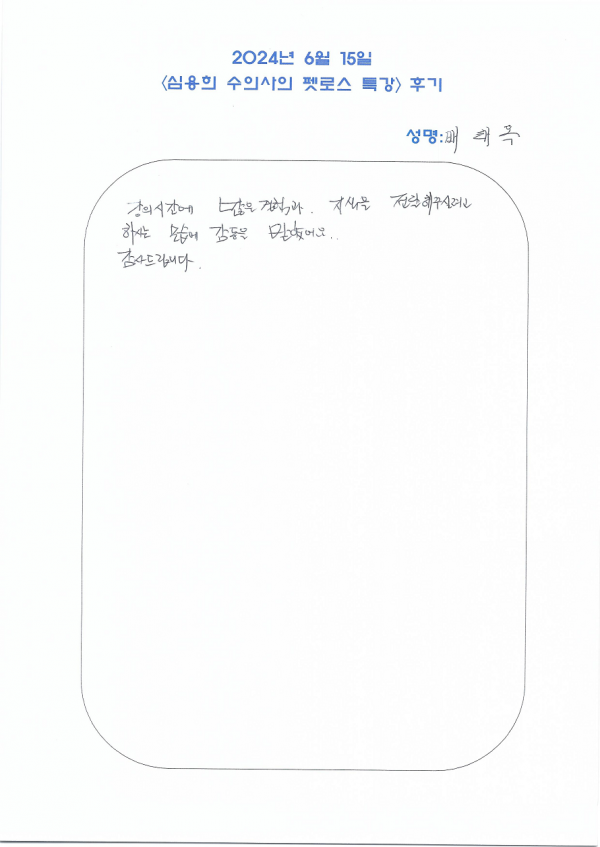 2024년 6월 15일
<심용희 수의사의 펫로스 특강> 후기
성명: 배 태 목
강의시간에 느낌을 경험과. 지식을 전달해주시려고
하시는 모습에 감동을 받았어요..
감사드립니다.